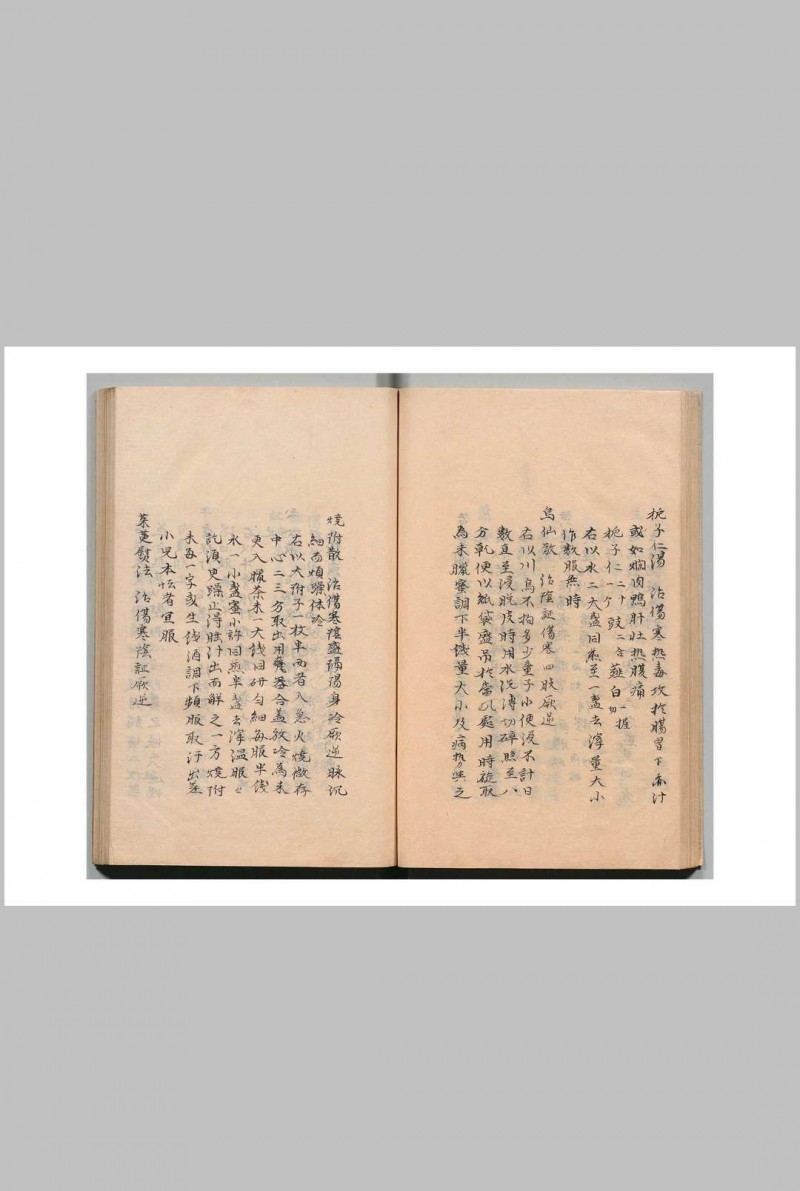 栀子仁湯　治傷寒热毒攻於腸胃下赤汁
或如爛肉鴨肝壮热腹痛
栀子仁二十　豉二合　薤白切一握
右以水二大盞同煎至一盞去滓量大小
作数服無時
烏仙散　治陰証傷寒四肢厥逆
右以川烏不拘多少童子小便浸不計日
数直至浸脱皮時用水洗薄切碎晒至八
方乾便以紙袋盛吊於當風處用時旋取
為末臘蜜調下半钱量大小及病势與之
燒附散　治傷寒陰盛隔陽身冷厥逆脉沉
細而煩躁体冷
右以大附子一枚半两者入急火燒微存
中心二三分取出用瓷器合盖放冷為末
更入臘茶末一大钱同研匀細每服半钱
水一小盞蜜小許同煎半盞去滓温服
訖須更躁止得睡汁出而解之一方燒附
末每一字或生钱酒調下頻服取汗出差
小児本怯者宜服
茱萸熨法　治傷寒陰証厥逆